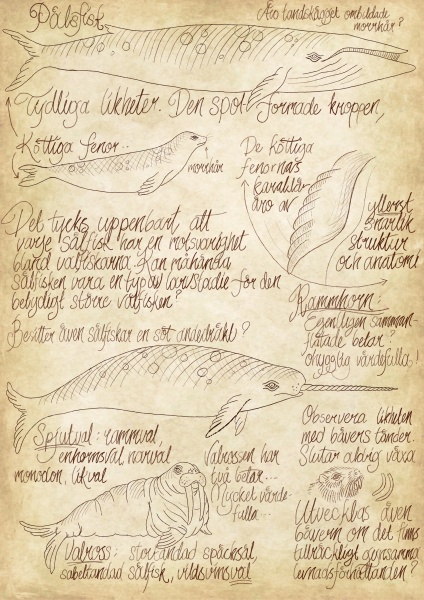 Pålsfisk
Äro landskägget ombildade
morrhår?
Tydliga likheter. Den spolformade kroppen,
Köttiga fenor..
morrhår
De köttiga
fenornas
karaktär
äro av
ytterst
snarlik
struktur
och anatomi
Det tycks uppenbart att
varje sälfisk har en motsvarighet
bland valfiskarna. Kan måhända
sälfisken vara en typ av larvstadie för den
betydligt större valfisken?
Besitter även sälfiskar en söt andedräkt?
Rammhorn:
Egentligen samman-
flätade betar?
ohyggligt värdefulla!
Spjutval: rammval,
enhornsval, narval
monodon, likval
Valrossen har
två betar...
Mycket värde-
fulla...
Observera likheten
med bävers tänder.
Slutar aldrig växa
Utvecklas även
bävern om det finns
tillräckligt gynnsamma
levnadsförhållanden?
Valross: stortandad späcksäl,
sabeltandad sälfisk, vildsvinsval